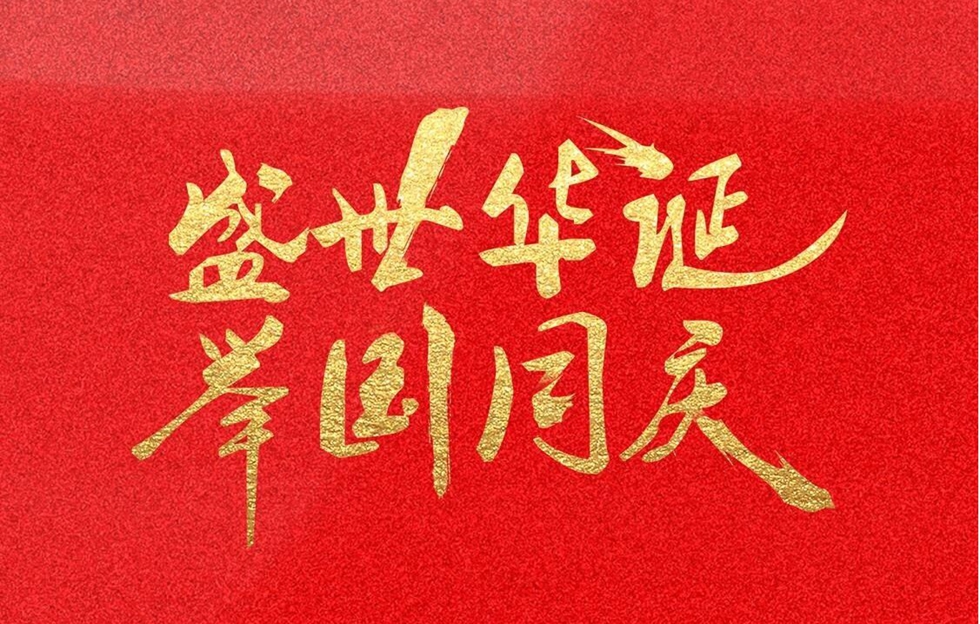 盛世华诞
举国同庆